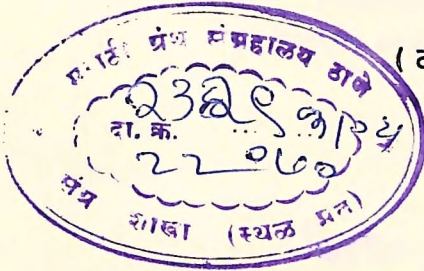 मराठी ग्रंथ संग्रहालय ठाणे
२३६९ काव्य
दा. क्र.
२२०७०
ग्रंथ शाखा (स्थळ प्रत)
(